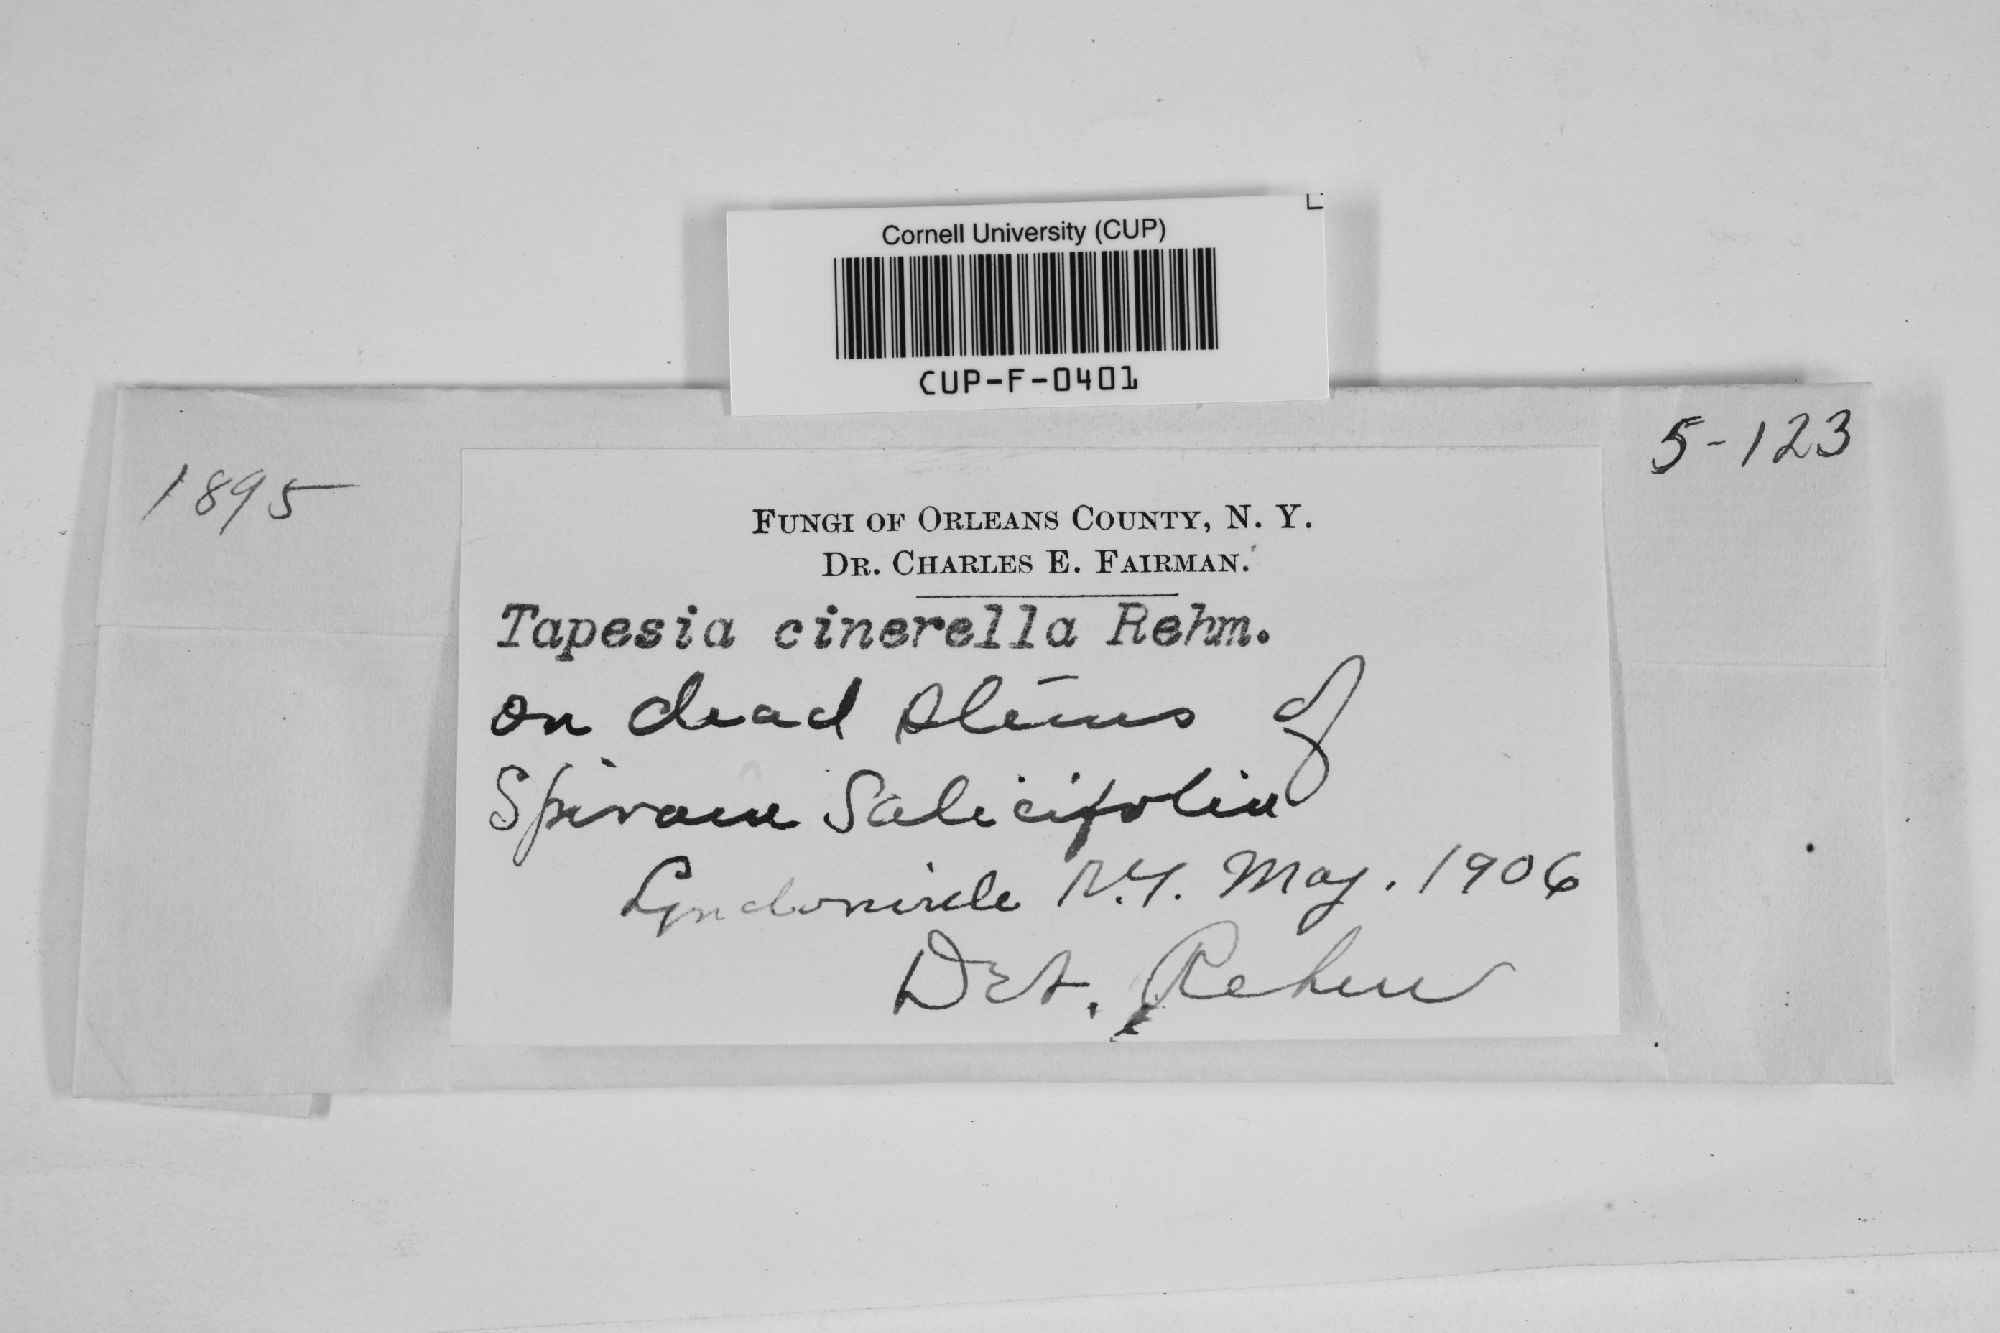 Cornell University (CUP)
CUP-F-0401
5-123
1895
FUNGI OF ORLEANS COUNTY, N. Y.
DR. CHARLES E. FAIRMAN.
Tapesia cinerella Rehm.
on dead stems of
Spiraea Salicifolia
Lyndonville N.Y. May. 1906
Det. Rehm